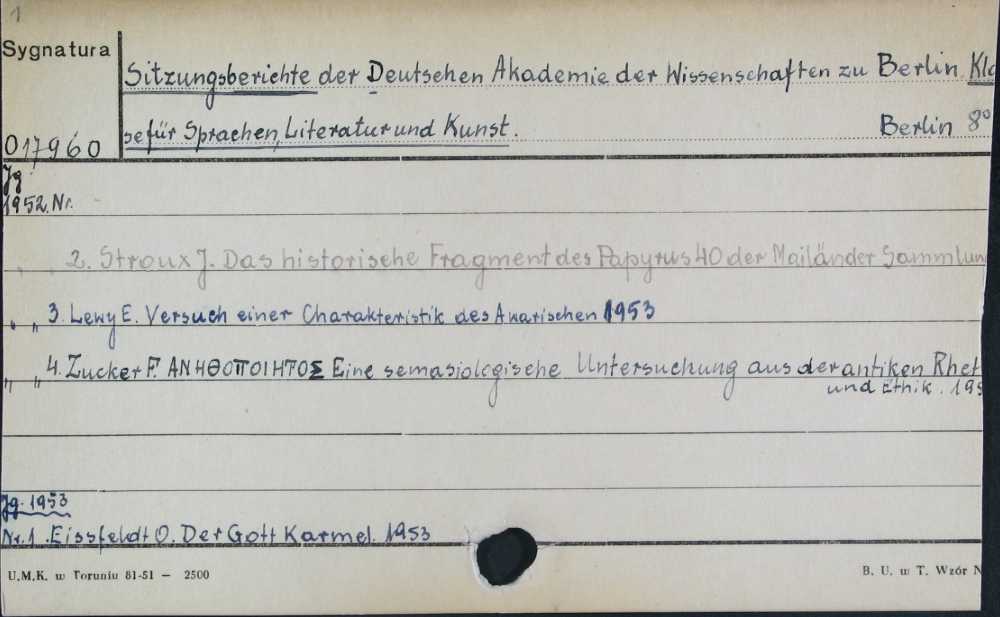 1
Sygnatura
Sitzungsberichte der Deutschen Akademie der Wissenschaften zu Berlin. Kla
se für Sprachen, Literatur und Kunst. Berlin 8°
017960
Jg
1952. Nr.
" " 2. Stroux J. Das historische Fragment des Papyrus 40 der Mailänder Sammlun
" " 3. Lewy E. Versuch einer Charakteristik des Awarischen 1953
" " 4. Zucker F. ΑΝΗΘΟΠΟΙΗΤΟΣ Eine semasiologische Untersuchung aus der antiken Rhet
und Ethik. 195
Jg. 1953
Nr. 1. Eissfeldt O. Der Gott Karmel. 1953
U.M.K. w Toruniu 81-51 — 2500
B. U. w T. Wzór N